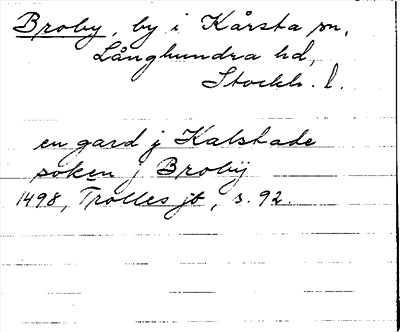 Broby, by i Kårsta sn,
Långhundra hd,
Stockh. l.
en gard j Kalstade
soken j Broby
1498, Trolles jb, s. 92.